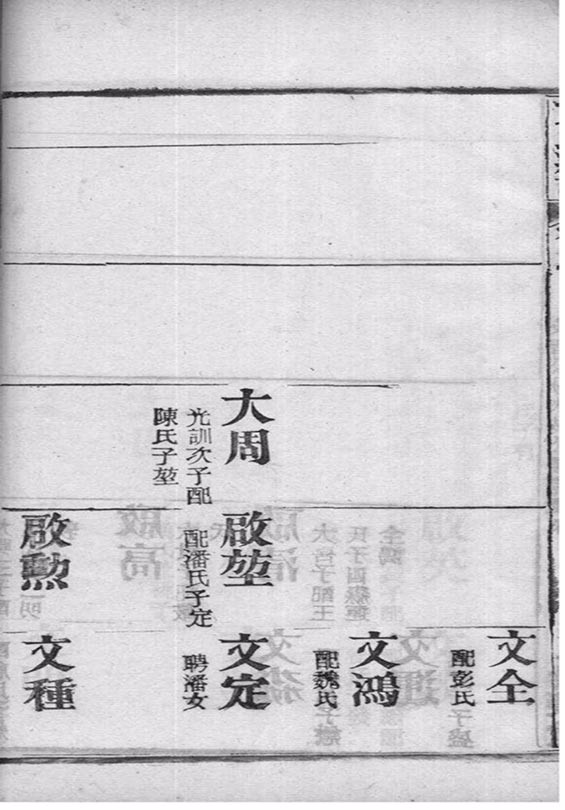 文全
配彭氏子盛
文鴻
配魏氏子懋
大周
光訓次子配
陳氏子堃
啟堃
配潘氏子定
文定
聘潘女
啟勲
文種